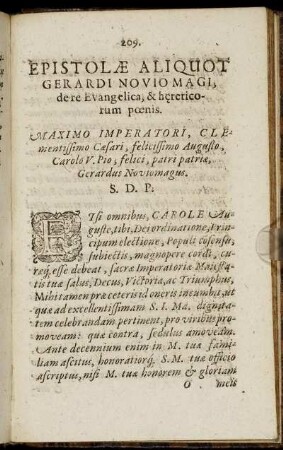 209.
EPISTOLÆ ALIQUOT
GERARDI NOVIOMAGI,
de re Evangelica, & hęretico-
rum pœnis.
MAXIMO IMPERATORI, CLE-
mentissimo Cæsari, felicissimo Augusto,
Carolo V. Pio, felici, patri patriæ,
Gerardus Noviomagus.
S. D. P.
ETsi omnibus, CAROLE Au-
guste, tibi, Dei ordinatione, Prin-
cipum electione, Populi cõsensu,
subiectis, magnopere cordi, cu-
ręq́; esse debeat, sacræ Imperatoriæ Maiesta-
tis tuæ salus, Decus, Victoria, ac Triumphus,
Mihi tamen præ ceteris id oneris incumbit, ut
quæ ad excellentissimam S. I. Ma. dignita-
tem celebrandam pertinent, pro viribus pro-
moveam: quæ contra, sedulus amoveam.
Ante decennium enim in M. tuæ fami-
liam ascitus, honoratiorq́; S. M. tuæ officio
ascriptus, nisi M. tuæ honorem & gloriam
O meis